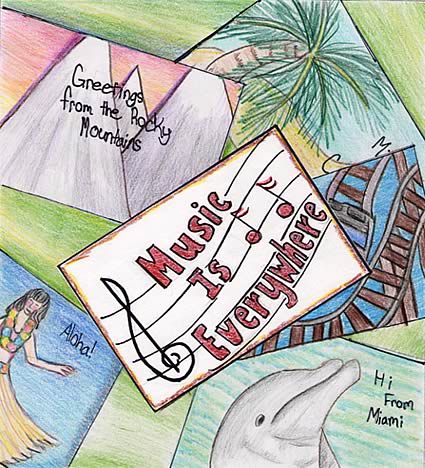 Greetings
from the Rocky
Mountains
Music
Is
Everywhere
Aloha!
Hi
From
Miami